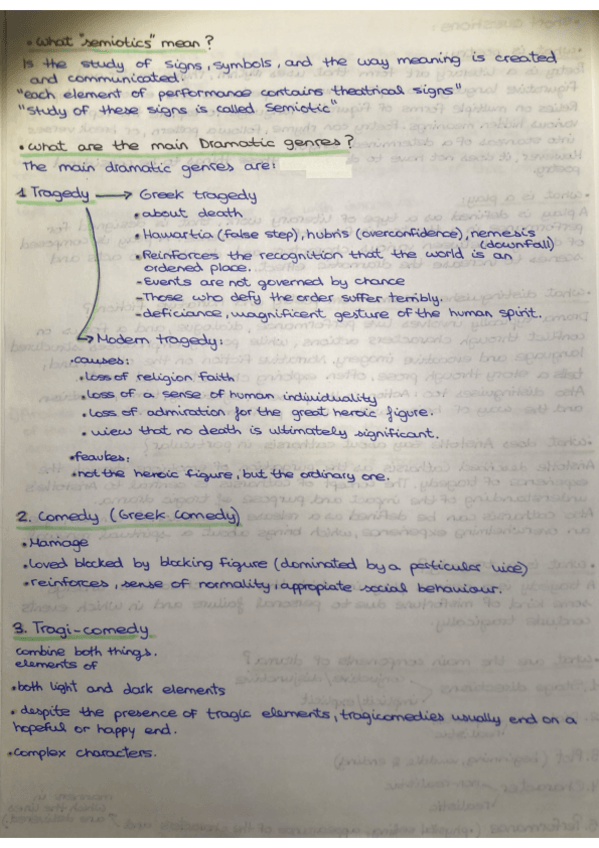 • What "semiotics" mean?
Is the study of signs, symbols, and the way meaning is created
and communicated.
"each element of performance contains theatrical signs"
"study of these signs is called Semiotic"
• what are the main Dramatic genres?
The main dramatic genres are:
1 Tragedy → Greek tragedy
• about death
• Hawartia (false step), hubris (overconfidence), nemesis
(downfall)
• Reinforces the recognition that the world is an
ordened place.
- Events are not governed by chance
- Those who defy the order suffer terribly.
- deficiance, magnificent gesture of the human spirit.
→ Modern tragedy:
• causes:
• loss of religion faith
• loss of a sense of human individuality
• loss of admiration for the great heroic figure.
• view that no death is ultimately significant.
• features:
• not the heroic figure, but the ordinary one.
2. Comedy (Greek comedy)
• Marriage
• loved blocked by blocking figure (dominated by a particular vice)
• reinforces, sense of normality, appropiate social behaviour.
3. Tragi-comedy
combine both things.
elements of
• both light and dark elements
• despite the presence of tragic elements, tragicomedies usually end on a
hopeful or happy end.
• complex characters.